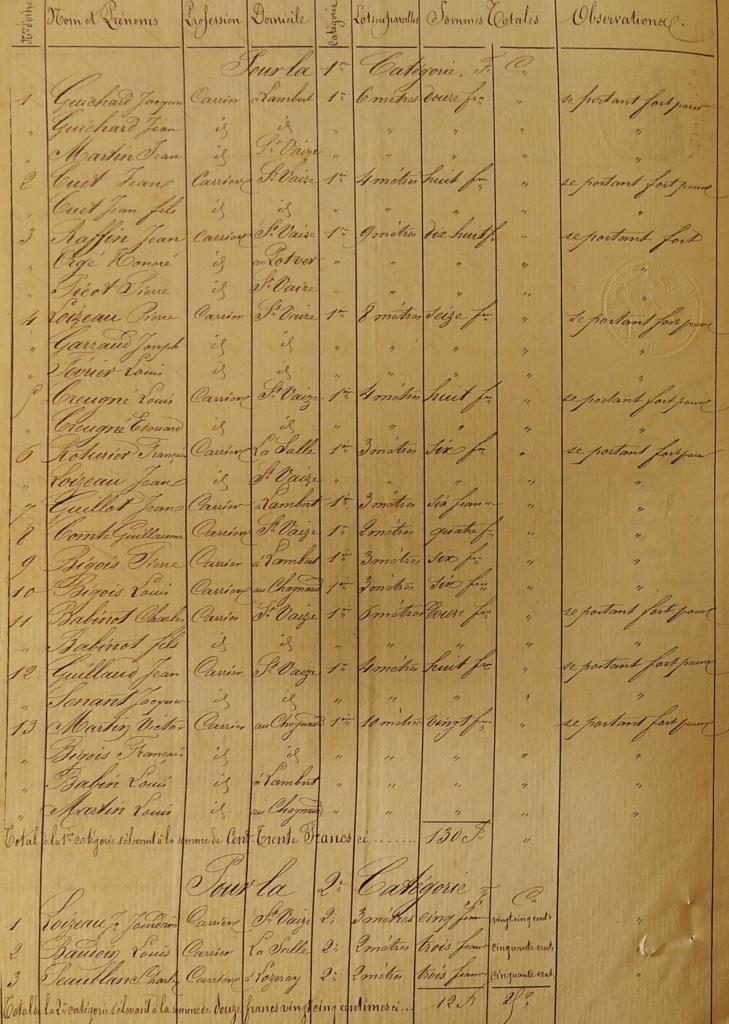 Nos d'ordre Nom et Prénoms Profession Domicile Catégorie Lots ou parcelles Sommes Totales Observations.
Pour la 1re Catégorie. F. C.
1 Guichard Jacques Carrier à Lambert 1re 6 mètres douze frs " se portant fort pour
" Guichard Jean id id " " " " "
" Martin Jean id St Vaize " " " "
2 Cuet Jean Carrier St Vaize 1re 4 mètres huit frs " se portant fort pour
" Cuet Jean fils id id " " " " "
3 Raffin Jean Carrier St Vaize 1re 9 mètres dix huit f. " se portant fort
" Orgé Honoré id " " " "
" Picot Pierre id St Vaize " " " " "
4 Loizeau Pierre Carrier St Vaize 1re 8 mètres seize frs " se portant fort pour
" Garraud Joseph id id " " " " "
" Février Louis id id " " " " "
5 Creugne Louis Carrier St Vaize 1re 4 mètres huit frs " se portant fort pour
" Creugne Edouard id id " " " " "
6 Roturier François Carrier La Salle 1re 3 mètres six frs " se portant fort pour
" Loizeau Jean id St Vaize " " " " "
7 Guillot Jean Carrier à Lambert 1re 3 mètres six francs " "
8 Comte Guillaume Carrier St Vaize 1re 2 mètres quatre f. " "
9 Bigois Pierre Carrier à Lambert 1re 3 mètres six frs " "
10 Bigois Louis Carrier au Chagnaud 1re 3 mètres six frs " "
11 Babinot Charles Carrier St Vaize 1re 6 mètres Douze frs " se portant fort pour
" Babinot fils id id " " " " "
12 Guillaud Jean Carrier St Vaize 1re 4 mètres huit frs " se portant fort pour
" Senant Jacques id id " " " " "
13 Martin Victor Carrier au Chagnaud 1re 10 mètres vingt frs " se portant fort pour
" Bigois François id id " " " " "
" Babin Louis id à Lambert " " " " "
" Martin Louis id au Chagnaud " " " " "
Total de la 1re catégorie s'élevant à la somme de Cent-Trente Francs ci ........ 130 F. "
Pour la 2e Catégorie F. C.
1 Loizeau Jourdain Carrier St Vaize 2e 3 mètres cinq francs vingt cinq cents "
2 Baudoin Louis Carrier La Salle 2e 2 mètres trois francs cinquante cents "
3 Charles Carrier 2e 2 mètres trois francs Cinquante cent. "
Total de la 2e catégorie s'élevant à la somme de douze francs vingt cinq centimes ci ... 12 F 25 c.